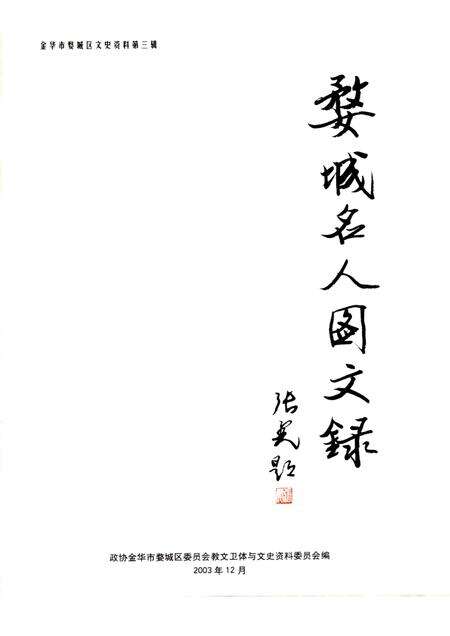 金华市婺城区文史资料第三辑
婺城名人图文録
张光题
政协金华市婺城区委员会教文卫体与文史资料委员会编
2003年12月